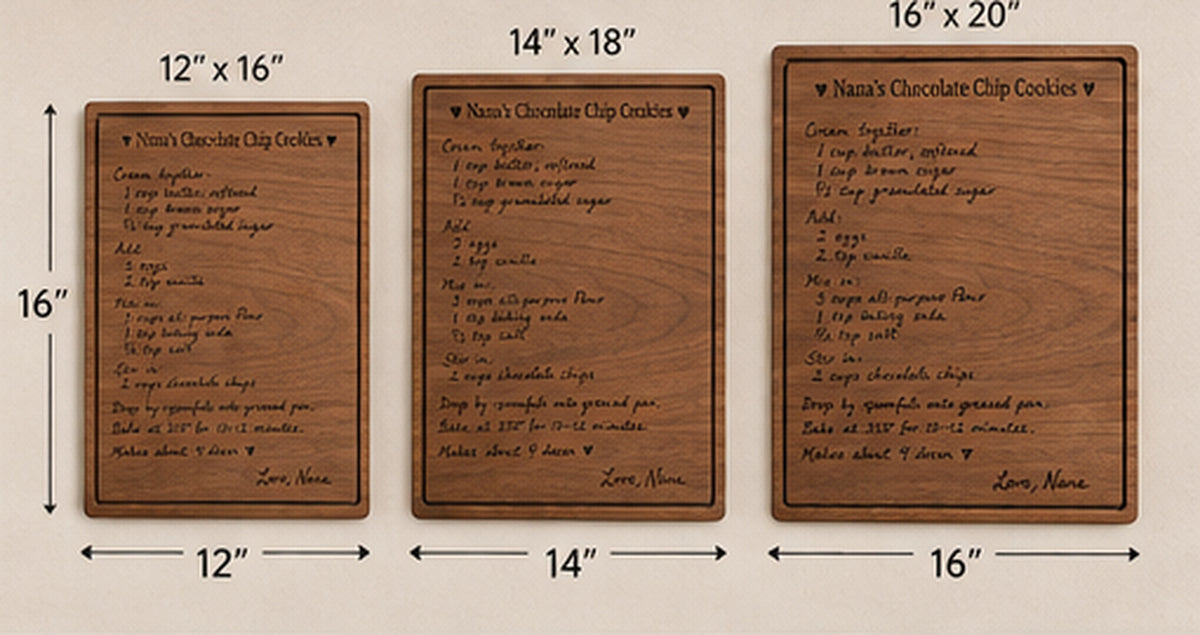 16" x 20"
14" x 18"
12" x 16"
♥ Nana's Chocolate Chip Cookies ♥
Cream together:
1 cup butter, softened
1 cup brown sugar
cup granulated sugar
Add
eggs
2 tsp vanilla
cups all-purpose
1 tsp baking soda
tsp salt
2 cups chocolate chips
Drop by spoonfuls onto greased pan.
Bake at for minutes.
Makes about dozen ♥
Love, Nana
♥ Nana's Chocolate Chip Cookies ♥
Cream together:
1 cup butter, softened
1 cup brown sugar
cup granulated sugar
Add
2 eggs
2 tsp vanilla
Mix in:
3 cups all-purpose
1 tsp baking soda
tsp salt
Stir in:
2 cups chocolate chips
Drop by spoonfuls onto greased pan.
Bake at for minutes.
Makes about dozen ♥
Love, Nana
♥ Nana's Chocolate Chip Cookies ♥
Cream together:
1 cup butter, softened
1 cup brown sugar
cup granulated sugar
Add:
2 eggs
2 tsp vanilla
Mix in:
3 cups all-purpose
1 tsp baking soda
tsp salt
Stir in:
2 cups chocolate chips
Drop by spoonfuls onto greased pan.
Bake at for minutes.
Makes about dozen ♥
Love, Nana
16"
12"
14"
16"